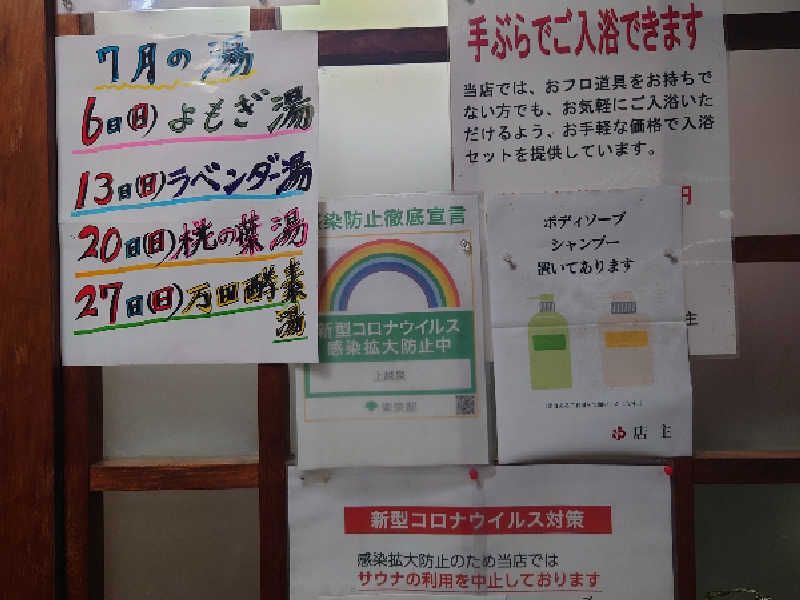 7月の湯
6日(日)よもぎ湯
13日(日)ラベンダー湯
20日(日)桃の葉湯
27日(日)万田酵素
湯
手ぶらでご入浴できます
当店では、おフロ道具をお持ちで
ない方でも、お気軽にご入浴いた
だけるよう、お手軽な価格で入浴
セットを提供しています。
円
主
染防止徹底宣言
新型コロナウイルス
感染拡大防止中
上越泉
東京都
ボディソープ
シャンプー
置いてあります
店主
新型コロナウイルス対策
感染拡大防止のため当店では
サウナの利用を中止しております